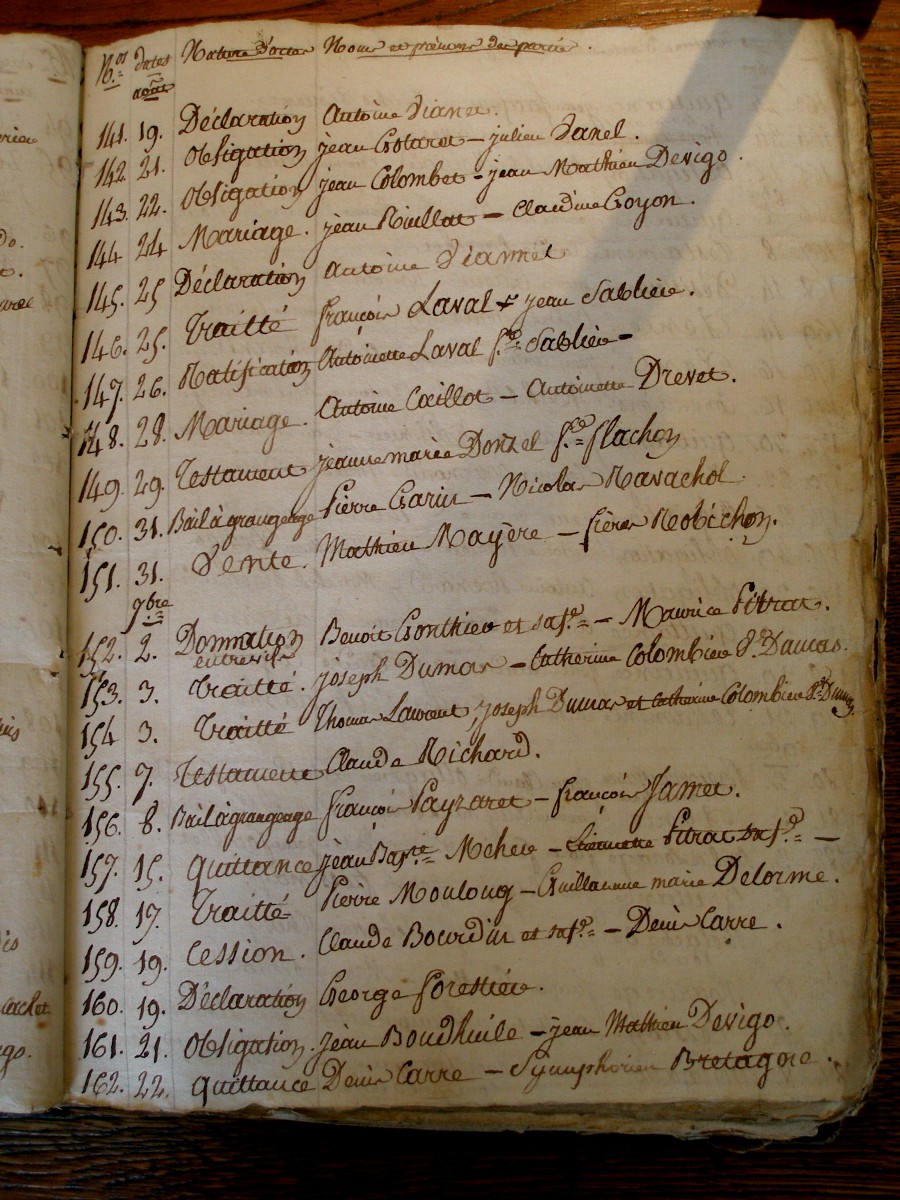 N.os dates Nature d'actes Noms et prénoms des parties.
août
141. 19. Déclaration Antoine Vianet
142 21. Obligation jean Crotaret – julien Vanel.
143. 22. Obligation jean Colombet – jean Mathieu Devigo.
144 24 Mariage. jean Riullat – Claudine Goyon.
145. 25 Déclaration Antoine Viannet
146. 25. Traitté françois Laval & jean Sablière.
147. 26. Ratification Antoinette Laval f.e Sablière –
148. 28. Mariage. Antoine Caillot – Antoinette Drevet.
149. 29. Testament jeanne marie Donzel f.e flachon
150. 31. Bail à grangeage Pierre Garin – Nicolas Ravachol.
151. 31. Vente. Mathieu Mayère – frères Robichon.
7bre
152. 2. Donnation Benoit Gonthier et sa f.e – Maurice Pitrat.
entrevifs
153. 3. Traitté. joseph Dumas – Catherine Colombier V.e Dumas.
154 3. Traitté Thomas Laurent, joseph Dumas et Catherine Colombier V.e Dumas
155. 7. Testament Claude Richard.
156. 8. Bail à grangeage françois Payzaret – françois Jamet.
157. 15. Quittance jean Bap.te Meheu – Pitrat sa f.e –
158. 17. Traitté Pierre Mouloug – Guillaume marie Delorme.
159. 19. Cession. Claude Bourdin et sa f.e – Denis Carre.
160. 19. Déclaration George forestier.
161. 21. Obligation. jean Boudhuile – jean Mathieu Devigo.
162. 22. Quittance Denis Carre – Symphorien Bretagne.